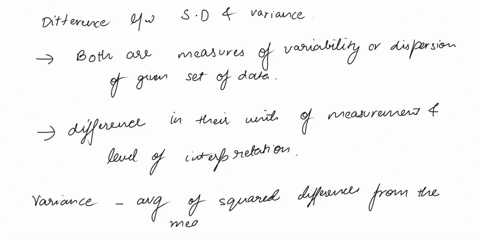 Difference b/w S.D & variance.
→ Both are measures of variability or dispersion
of given set of data.
→ difference in their units of measurement &
level of interpretation.
Variance - avg of squared difference from the
mea